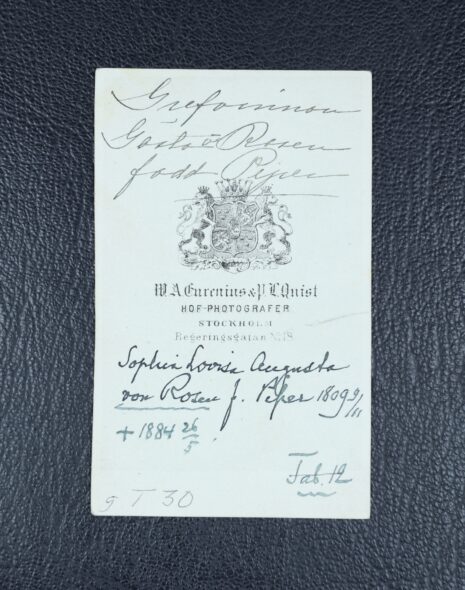 Grefvinnan
Gösta v Rosen
född Piper
W. A. Eurenius & P. L. Quist
HOF-PHOTOGRAFER
STOCKHOLM
Regeringsgatan No 18
Sophia Lovisa Augusta
von Rosen f. Piper 1809 9/11
+ 1884 26/5
Tab. 12
9 T 30